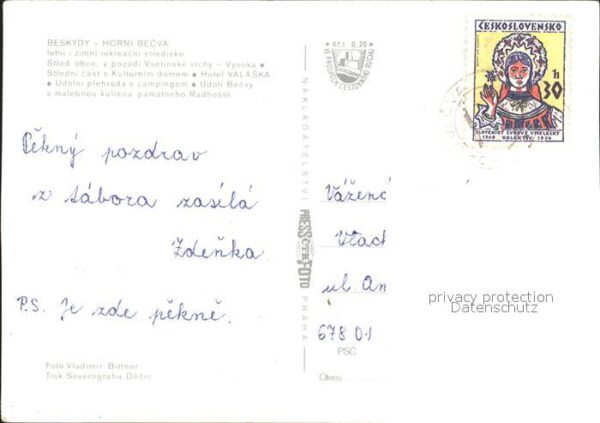 BESKYDY – HORNÍ BEČVA
letní i zimní rekreační středisko
Střed obce, v pozadí Vsetínské vrchy – Vysoká ●
Střední část s Kulturním domem ● Hotel VALAŠKA
● Údolní přehrada s campingem ● Údolí Bečvy
s malebnou kulisou památného Radhoště
Kčs 0,20
VE PROSPĚCH CESTOVNÍHO RUCHU
ČESKOSLOVENSKO
30 h
SLOVENSKÝ ĽUDOVÝ UMELECKÝ
KOLEKTÍV
1949 1974
Pěkný pozdrav
z tábora zasílá
Zdeňka
P.S. Je zde pěkně.
NAKLADATELSTVÍ PRESSFOTO PRAHA
ČTK
Vážen
Vlach
ul. An
678 01
PSČ
Okres:
privacy protection
Datenschutz
Foto Vladimír Bittner
Tisk Severografia Děčín